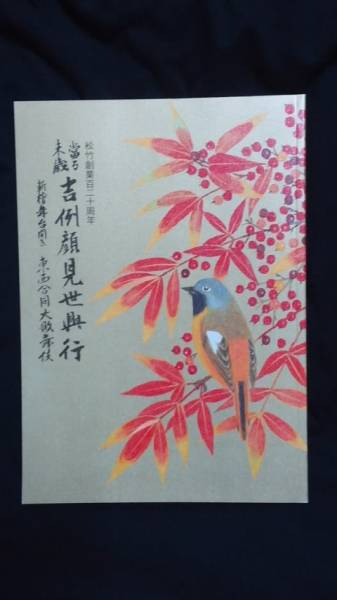 松竹創業百二十周年
當る
未歳
吉例顔見世興行
新檜舞台開き 東西合同大歌舞伎